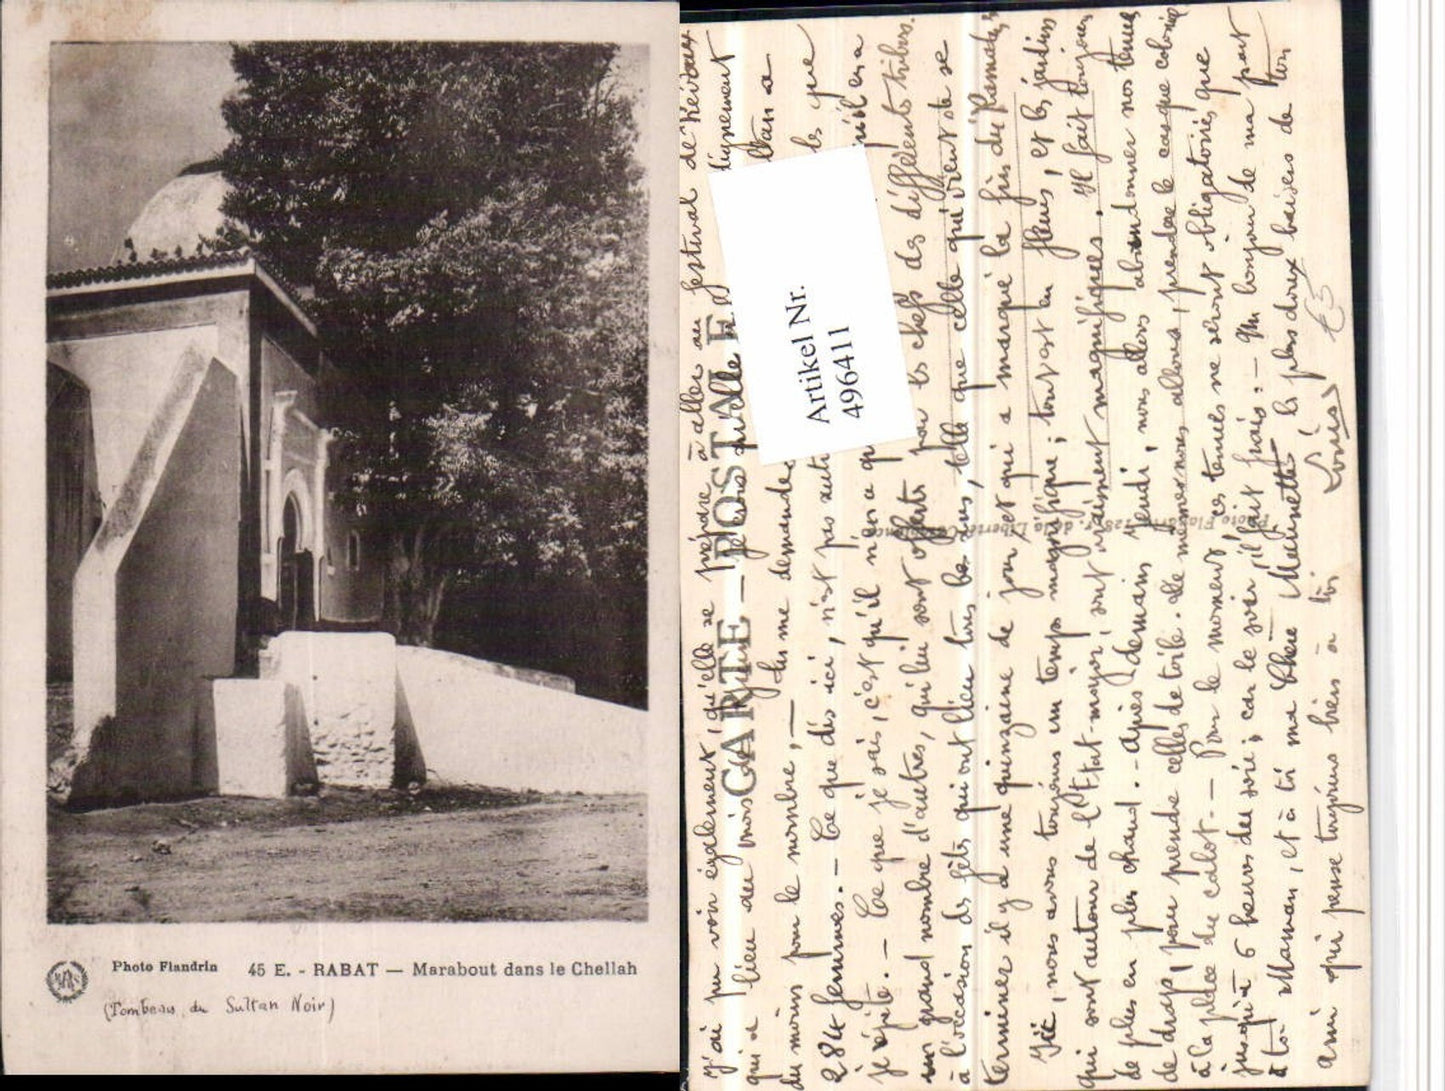 Photo Flandrin 45 E. - RABAT — Marabout dans le Chellah
(Tombeau du Sultan Noir)
CARTE POSTALE
Artikel Nr.
496411
j'ai pu voir également, qu'elle se prépare à aller au festival de
qui a lieu au mois
du moins pour le nombre, — Tu me demande les que
284 femmes. — Ce que dès ici, n'est pas
je répète. — Ce que je sais, c'est qu'il n'en a qu'il en a
un grand nombre d'autres, qui lui sont offerts par les chefs des différents tribus.
à l'occasion des fêtes qui ont lieu tous les ans, telle que celle qui vient de se
terminer il y a une quinzaine de jours, et qui a marqué la fin du Ramadan
Ici, nous avons toujours un temps magnifique; tout est en fleurs, et les jardins
qui sont autour de l'Etat-major, sont vraiment magnifiques. Il fait toujours
de plus en plus chaud. — Après demain jeudi, nous allons abandonner nos tenues
de drap, pour prendre celles de toile. De même nous allons, prendre le casque colonial
à la place du calot. — Pour le moment, ces tenues ne seront obligatoires que
jusqu'à 6 heures du soir, car le soir, il fait frais. — Un bonjour de ma part
à ta Maman, et à toi ma Chère Mainette les plus doux baisers de ton
ami qui pense toujours bien à toi
Louis